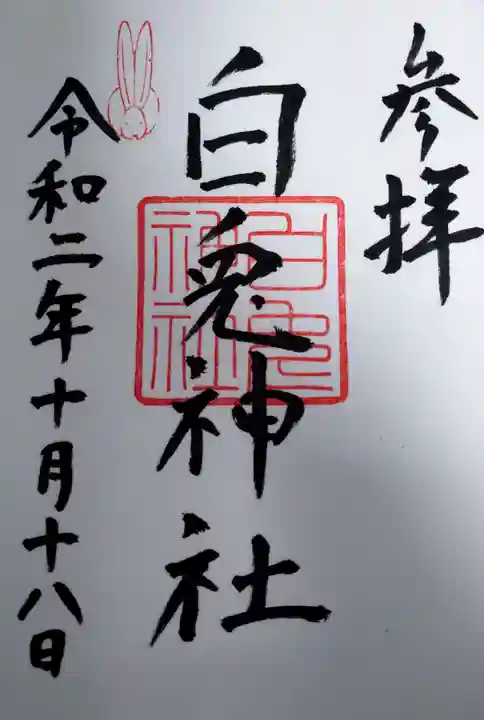 参拝
白兎神社
白兎神社
令和二年十月十八日